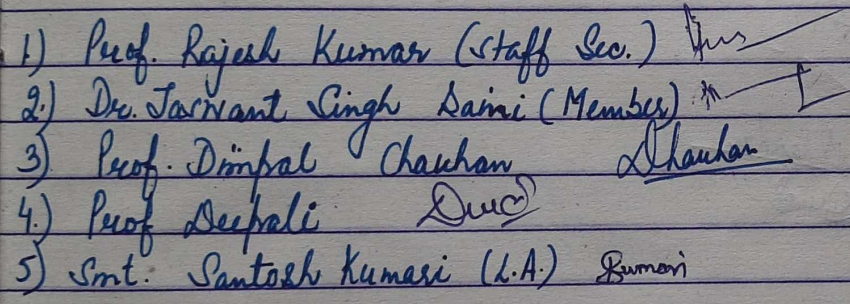 1) Prof. Rajesh Kumar (Staff Sec.)
2.) Dr. Jaswant Singh Saini (Member)
3) Prof. Dimpal Chauhan Dhauhan
4.) Prof Deepali
5) Smt. Santosh Kumari (L.A.) Kumari